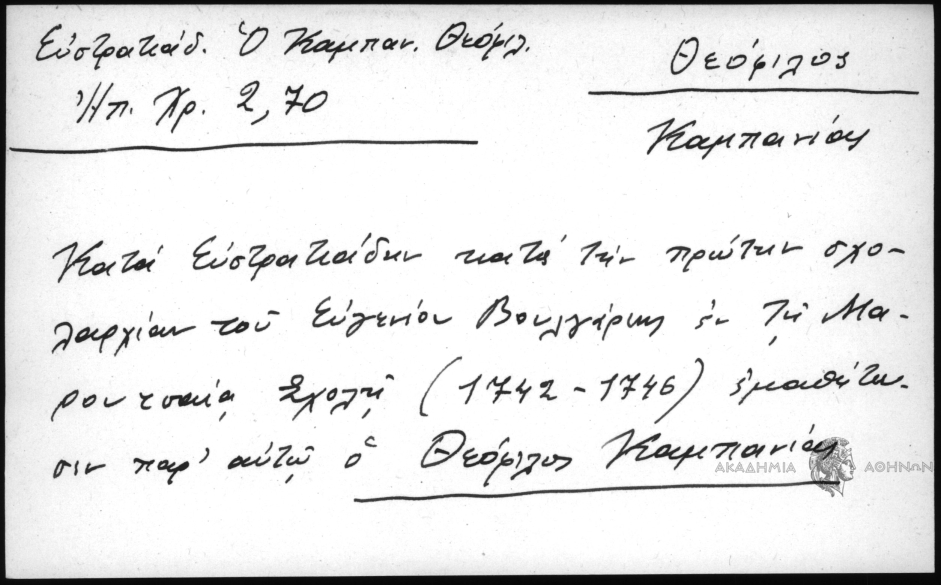 Εὐστρατιάδ. Ὁ Καμπαν. Θεόφιλ.
Ἠπ. Χρ. 2, 70
Θεόφιλος
Καμπανίας
Κατά Εὐστρατιάδην κατά τήν πρώτην σχο-
λαρχίαν τοῦ Εὐγενίου Βουλγάρεως ἐν τῇ Μα-
ρουτσαίᾳ Σχολῇ (1742-1746) ἐμαθήτευ-
σεν παρ' αὐτῷ ὁ Θεόφιλος Καμπανίας
ΑΚΑΔΗΜΙΑ ΑΘΗΝΩΝ